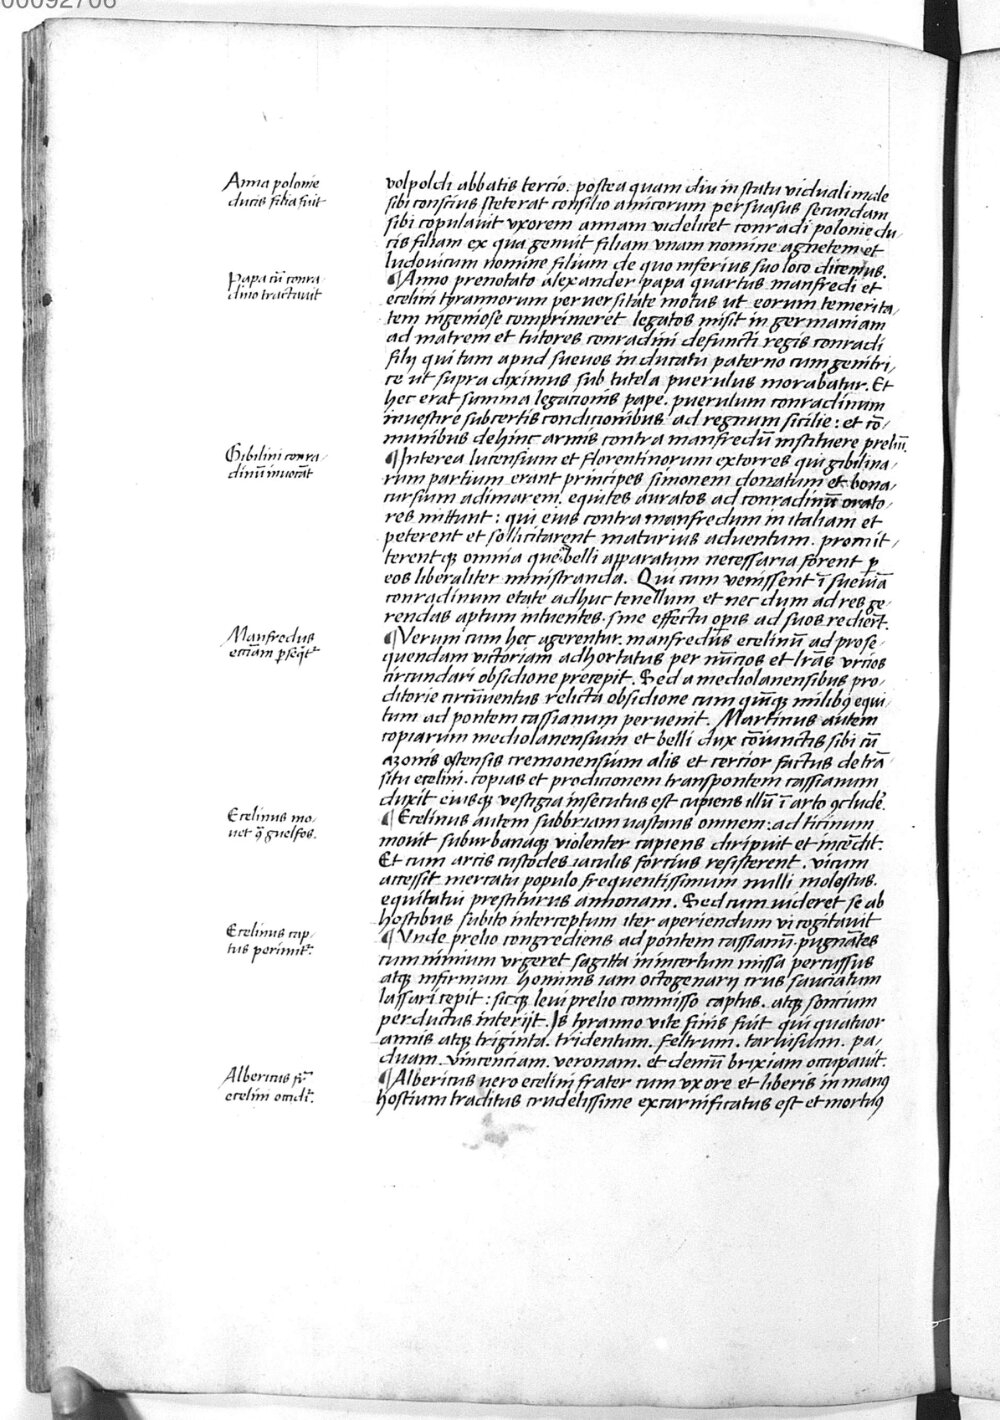 00092706
Anna polonie
ducis filia fuit
volpoldi abbatis tercio. postea quam diu in statu viduali male
sibi conscius steterat consilio amicorum persuasus secundam
sibi copulavit vxorem annam videlicet conradi polonie du/
cis filiam ex qua genuit filiam vnam nomine agnetem et
ludovicum nomine filium de quo inferius suo loco dicemus.
Papa cū conra/
dino tractavit
¶Anno prenotato alexander papa quartus manfredi et
ecelini tyrannorum perversitate motus ut eorum temerita/
tem ingeniose comprimeret legatos misit in germaniam
ad matrem et tutores conradini defuncti regis conradi
filij qui tum apud suevos in ducatu paterno cum genitri/
ce ut supra diximus sub tutela puerulus morabatur. Et
hec erat summa legacionis pape. puerulum conradinum
investire sub certis condicionibus ad regnum sicilie: et cō/
munibus dehinc armis contra manfredū instituere preliū.
Gibilini conra/
dinū invocāt
¶Interea lucensium et florentinorum extorres qui gibilina/
rum partium erant principes simonem donatum et bona/
cursium adimarem. equites auratos ad conradinū orato/
res mittunt: qui eius contra manfredum in italiam et
peterent et sollicitarent maturius adventum. promit/
terentqꝫ omnia que belli apparatum necessaria forent ꝑ
eos liberaliter ministranda. Qui cum venissent ī sueviā
conradinum etate adhuc tenellum et nec dum ad res ge/
rendas aptum intuentes. sine effectu opis ad suos redierūt.
Manfredus
ecciam ꝑseqit᷑
¶Verum cum hec agerentur. manfredus ecelinū ad prose/
quendam victoriam adhortatus per nūcios et lrās vrcios
circundari obsidione precepit. Sed a mediolanensibus pro/
ditorie circūventus relicta obsidione cum quīqꝫ milibꝰ equi/
tum ad pontem cassianum pervenit. Martinus autem
copiarum mediolanensium et belli dux cōiunctis sibi cū
azonis ostensis cremonensium aliis et cercior factus de trā/
situ ecelini. copias et prodicionem trans pontem cassianum
duxit eiusqꝫ vestigia insecutus est cupiens illū ī arto ꝯclude᷑.
Ecelinus mo/
uet ꝯ guelfos.
¶Ecelinus autem subbriam vastans omnem: ad ticinum
movit suburbanaqꝫ violenter capiens diripuit et incēdit:
Et cum arcis custodes iaculis forcius resisterent. vicum
accessit mercatu populo frequentissimum nulli molestus.
equitatui prestiturus annonam. Sed cum videret se ab
hostibus subito interceptum iter aperiendum vi cogitavit
Ecelinus cap/
tus perimit᷑.
¶Vnde prelio congrediens ad pontem cassianū. pugnātes
cum nimium vrgeret sagitta in incertum missa percussus
atqꝫ infirmum hominis iam octogenarij crus sauciatum
lassari cepit: sicqꝫ levi prelio commisso captus. atqꝫ soncium
perductus interijt. Is tyranno vite finis fuit qui quatuor
annis atqꝫ triginta. tridentum. feltrum. tarvisium. pa/
duam. vincenciam. veronam. et demū brixiam occupavit.
Albericus fr̄
ecelini occidit᷑.
¶Albericus vero ecelini frater cum vxore et liberis in manꝰ
hostium traditus crudelissime excarnificatus est et mortuꝰ